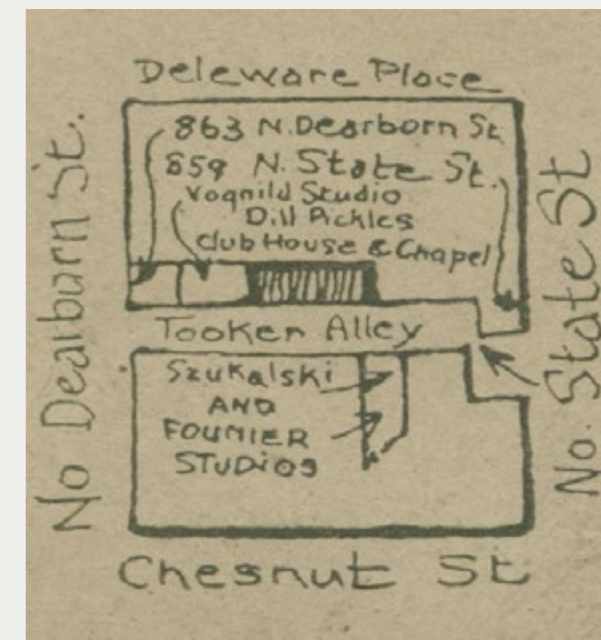 Deleware Place
No Dearburn St.
863 N. Dearborn St
859 N. State St.
Vognild Studio
Dill Pickles
Club House & Chapel
Tooker Alley
Szukalski
AND
FOUNIER
STUDIOS
No. State St
Chesnut St